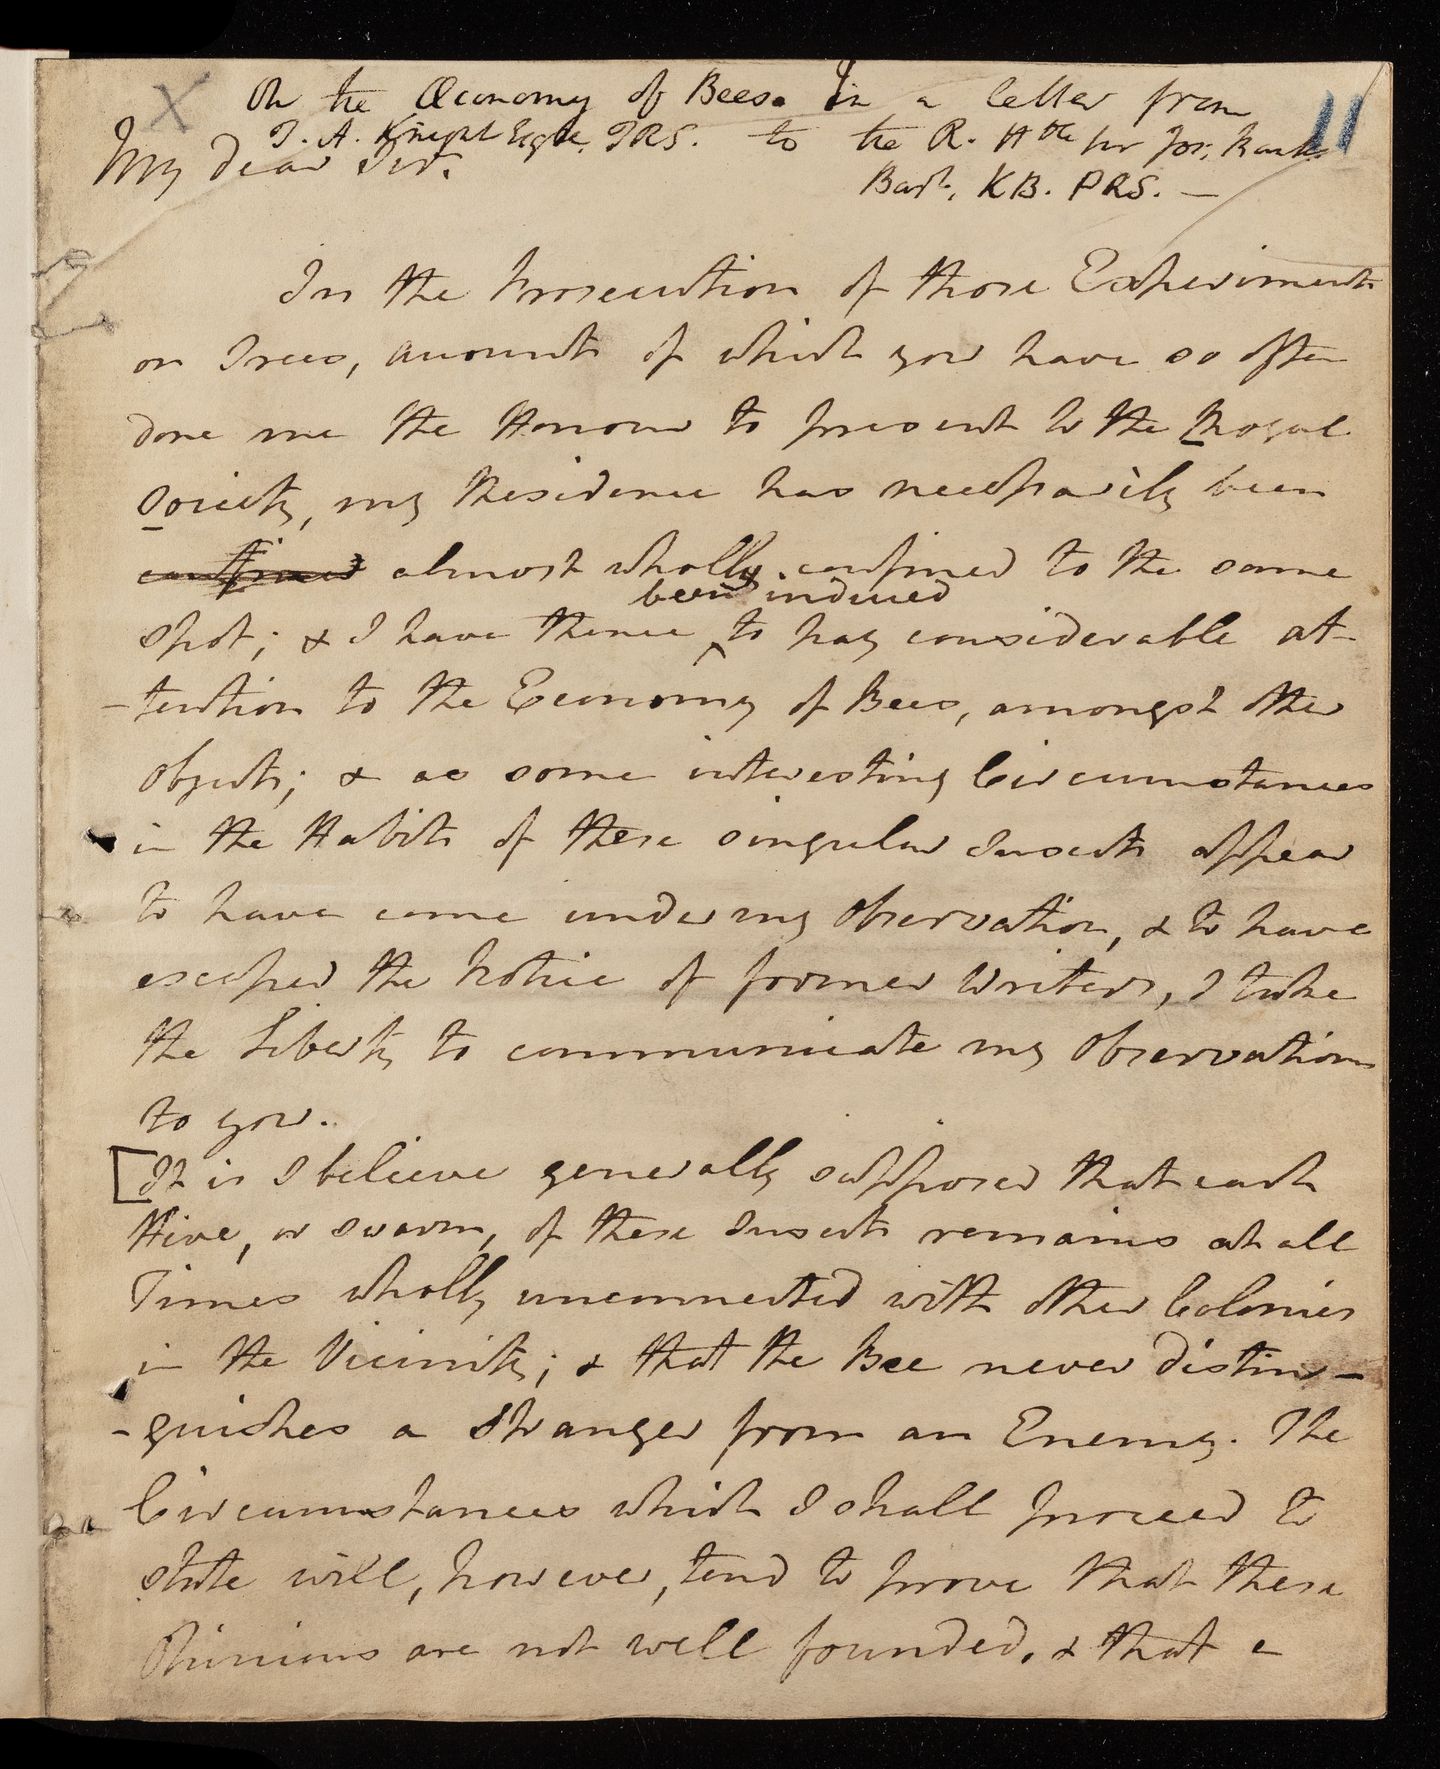 X
On the Œconomy of Bees. In a letter from
T. A. Knight Esqre. FRS. to the R. Hble Sir Jos. Banks
11
Bart. KB. PRS. —
My dear Sir.
In the Prosecution of those Experiments
on Trees, accounts of which you have so often
done me the Honour to present to the Royal
Society, my Residence has necessarily been
confined almost wholly confined to the same
been induced
spot; & I have thence ^ to pay considerable at-
-tention to the Economy of Bees, amongst other
objects; & as some interesting Circumstances
in the Habits of these singular Insects appear
to have come under my observation, & to have
escaped the Notice of former Writers, I take
the Liberty to communicate my observations
to you.
[It is I believe generally supposed that each
Hive, or swarm, of these Insects remains at all
Times wholly unconnected with other Colonies
in the Vicinity; & that the Bee never distin-
-guishes a Stranger from an Enemy. The
Circumstances which I shall proceed to
state will, however, tend to prove that these
Opinions are not well founded, & that a